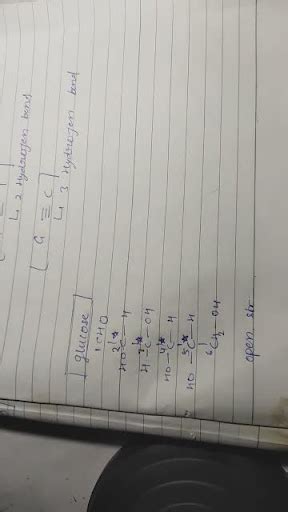 ↳ 2 Hydrogen bond
[ G ≡ C ]
↳ 3 Hydrogen bond
glucose
1 CHO
HO-2C*-H
H-3C*-OH
HO-4C*-H
HO-5C*-H
6 CH2-OH
open str